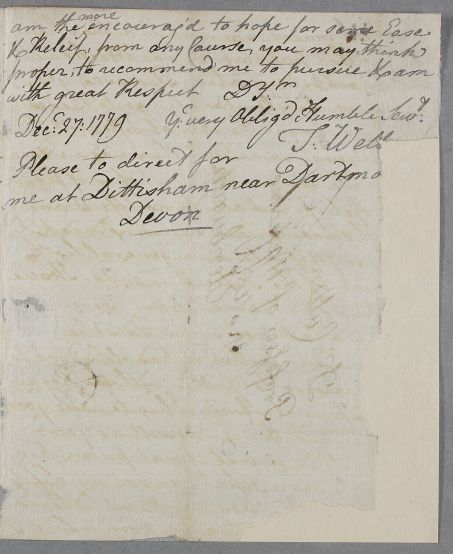 more
am the encourag'd to hope for some Ease
& Releif, from any Course, you may think
proper, to recommend me to pursue & am
with great Respect Dr Sr
Decr. 27: 1779 Yr. very Obligd. Humble Servt.
T: Webb
Please to direct for
me at Dittisham near Dartmo
Devon